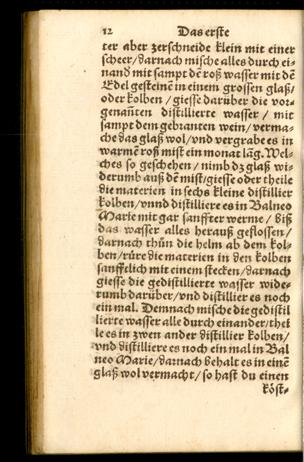 12 Das erste
ter aber zerschneide klein mit einer
scheer/darnach mische alles durch ei-
nand mit sampt dē roß wasser mit dē
Edel gesteine in einem grossen glaß/
oder kolben / giesse darüber die vor-
genañten distillierte wasser / mit
sampt dem gebranten wein/ verma-
che das glaß wol/vnd vergrabe es in
warmē roß mist ein monat lāg. Wel-
ches so geschehen / nimb dz glaß wi-
derumb auß dē mist/giesse oder theile
die materien in sechs kleine distillier
kolben/vnnd distilliere es in Balneo
Marie mit gar sanffter werme / biß
das wasser alles herauß geflossen/
darnach thůn die helm ab dem kol-
ben/rüre die materien in den kolben
sanfftlich mit einem stecken/darnach
giesse die gedistillierte wasser wide-
rumb darüber/vnd distillier es noch
ein mal. Demnach mische die gedistil
lierte wasser alle durch einander/thei
le es in zwen ander distillier kolben/
vnd distilliere es noch ein mal in Bal
neo Marie/darnach behalt es in einē
glaß wol vermacht/so hast du einen
köst-